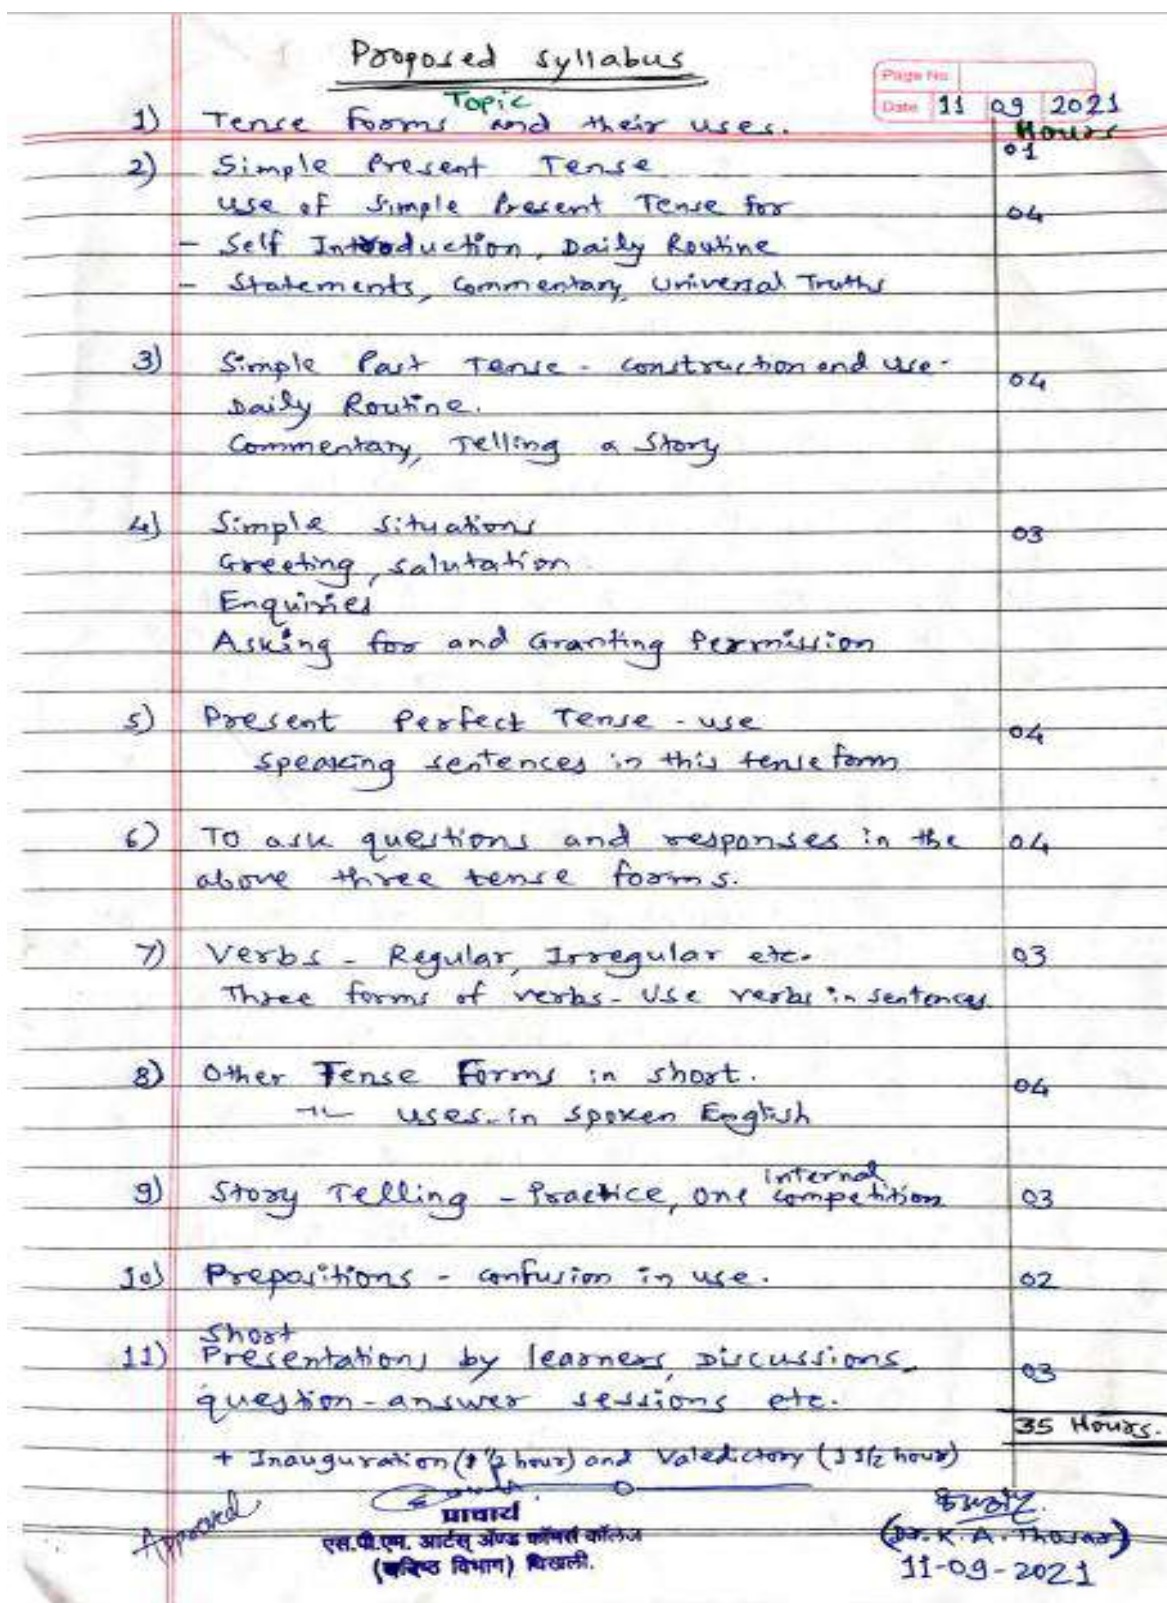 Proposed syllabus
Page No.
Date 11 09 2021
Topic
Hours
1) Tense forms and their uses. 01
2) Simple Present Tense
use of Simple Present Tense for 04
- Self Introduction, Daily Routine
- Statements, Commentary, Universal Truths
3) Simple Past Tense - construction and use.
04
Daily Routine.
Commentary, Telling a Story
4) Simple Situations 03
Greeting, salutation
Enquiries
Asking for and Granting Permission
5) Present Perfect Tense - use 04
speaking sentences in this tense form
6) To ask questions and responses in the 04
above three tense forms.
7) Verbs - Regular, Irregular etc. 03
Three forms of verbs - Use verbs in sentences
8) Other Tense Forms in short. 04
uses in spoken English
internal
9) Story Telling - Practice, one competition 03
10) Prepositions - confusion in use. 02
Short
11) Presentations by learners, Discussions, 03
question-answer sessions etc.
35 Hours.
+ Inauguration (1 1/2 hour) and Valedictory (1 1/2 hour)
Approved
प्राचार्य
एस.पी.एम. आर्टस् अँण्ड कॉमर्स कॉलेज
(वरिष्ठ विभाग) चिखली.
(Dr. K. A. Thosar)
11-09-2021